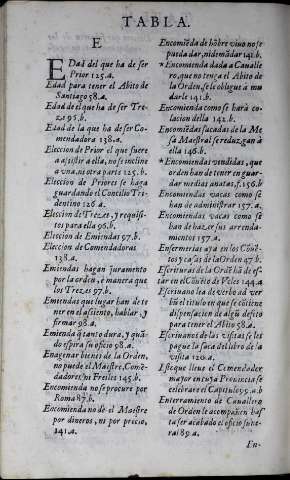 TABLA.
E
EDad del que ha de ser
Prior 125.a.
Edad para tener el Abito de
Santiago 58.a.
Edad de el que ha de ser Tre-
ze 95.b.
Edad de la que ha de ser Co-
mendadora 138.a.
Eleccion de Prior el que fuere
a assistir a ella, no se incline
a vna, ni otra parte 125.b.
Eleccion de Priores se haga
guardando el Concilio Tri-
dentino 126.a.
Eleccion de Trezes, y requisi-
tos para ella 96.b.
Eleccion de Emiendas 97.b.
Eleccion de Comendadoras
138.a.
Emiendas hagan juramento
por la orden, è manera que
los Trezes 97.b.
Emiendas que lugar han de te
ner en el assiento, hablar, y
firmar 98.a.
Emienda q̃ tanto dura, y quã-
do espira su oficio 98.a.
Enagenar bienes de la Orden,
no puede el Maestre, Comẽ-
dadores, ni Freiles 145.b.
Encomienda no se procure por
Roma 87.b.
Encomienda no dè el Maestre
por dineros, ni por precio,
141.a.
Encomiẽda de hõbre viuo no se
pueda dar, ni demãdar 141.b.
*Encomienda dada a Caualle
ro, que no tenga el Abito de
la Orden, se le obligue à mu
darle 141.b.
Encomienda como se harà co-
lacion della 142.b.
Encomiẽdas sacadas de la Me
sa Maestral se reduzgan à
ella 146.b.
*Encomiendas vendidas, que
orden han de tener en guar-
dar medias anatas, f. 156.b
Encomiendas vacas como se
han de administrar 157.a.
Encomiendas vacas como se
han de hazer sus arrenda-
mientos 157.a.
Enfermerias aya en los Cõuẽ-
tos y casas de la Ordẽ 47.b.
Escrituras de la Ordẽ hã de es-
tar en el Cõuẽto de Veles 144.a
Escriuano lea de verbo ad ver
bũ el titulo en que se cõtiene
dispensacion de algũ defeto
para tener el Abito 58.a.
Escriuanos de las visitas se les
pague la saca del libro de la
visita 120.a.
Este que llego el Comendador
mayor en tu ya Prouincia se
celebrare el Capitulo 69.b
Enterramiento de Cauallero
de Orden le acompañen has
ta ser acabado el oficio fune-
ral 89.a.
En-